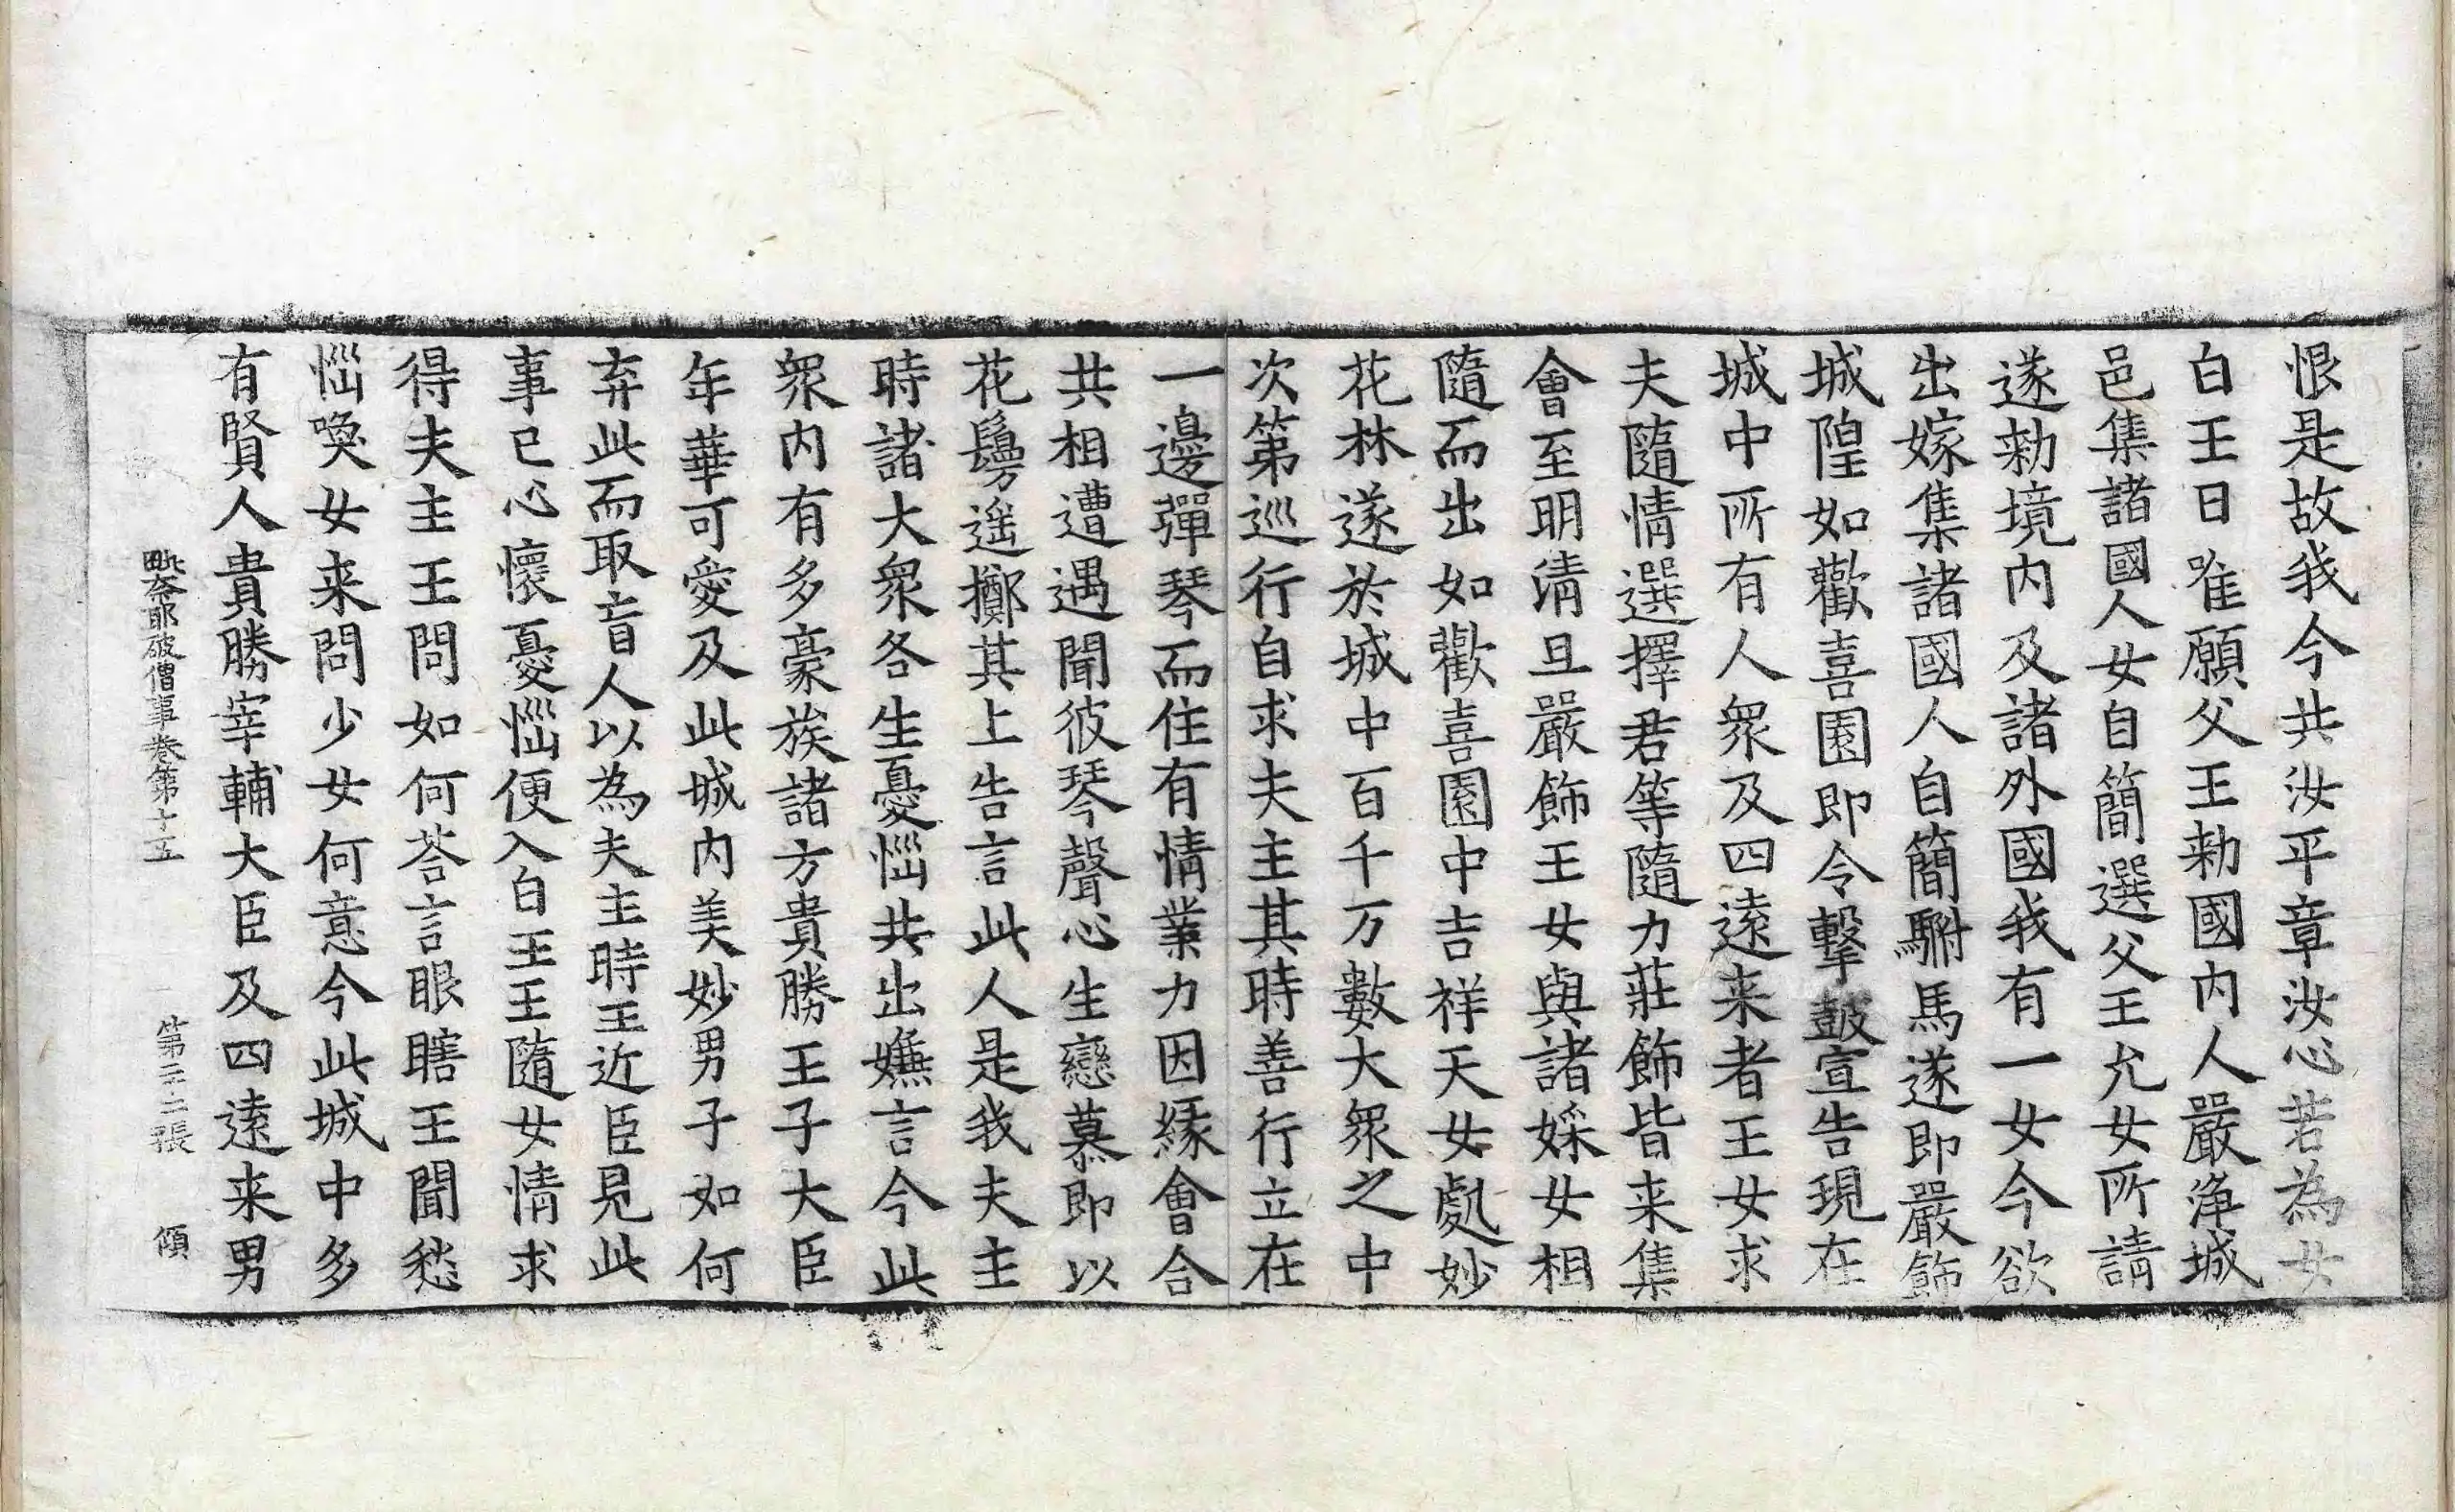 恨是故我今共汝平章汝心若為女
白王曰唯願父王勑國内人嚴淨城
邑集諸國人女自簡選父王允女所請
遂勑境内及諸外國我有一女今欲
出嫁集諸國人自簡駙馬遂即嚴飾
城隍如歡喜園即令擊鼓宣告現在
城中所有人衆及四遠来者王女求
夫隨情選擇君等隨力莊飾皆来集
會至明清旦嚴飾王女與諸婇女相
隨而出如歡喜園中吉祥天女處妙
花林遂於城中百千万數大衆之中
次第巡行自求夫主其時善行立在
一邊彈琴而住有情業力因緣會合
共相遭遇聞彼琴聲心生戀慕即以
花鬘遥擲其上告言此人是我夫主
時諸大衆各生憂惱共出嫌言今此
衆内有多豪族諸方貴勝王子大臣
年華可愛及此城内美妙男子如何
弃此而取盲人以為夫主時王近臣見此
事已心懷憂惱便入白王王隨女情求
得夫主王問如何荅言眼瞎王聞愁
惱喚女来問少女何意今此城中多
有賢人貴勝宰輔大臣及四遠来男
毗奈耶破僧事卷第十五 第二十二張 傾